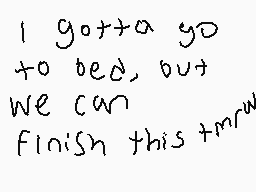 I gotta go
to bed, but
we can
finish this tmrw